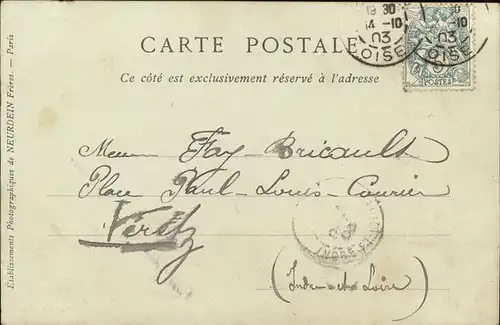 19 30
4 -10
03
OISE
30
-10
03
OISE
POSTES
CARTE POSTALE
Ce côté est exclusivement réservé à l'adresse
Fay-Bricault
Place Paul-Louis-Courier
Veretz
INDRE-ET-
(Indre-et-Loire)
Établissements Photographiques de NEURDEIN Frères. — Paris